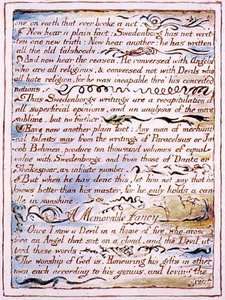 one on earth that ever broke a net.
Now hear a plain fact: Swedenborg has not writ-
ten one new truth: Now hear another: he has written
all the old falshoods.
And now hear the reason. He conversed with Angels
who are all religious, & conversed not with Devils who
all hate religion, for he was incapable thro' his conceited
notions.
Thus Swedenborgs writings are a recapitulation of
all superficial opinions, and an analysis of the more
sublime. but no further.
Have now another plain fact: Any man of mechani-
cal talents may from the writings of Paracelsus or Ja-
cob Behmen, produce ten thousand volumes of equal
value with Swedenborg's. and from those of Dante or
Shakespear, an infinite number.
But when he has done this, let him not say that he
knows better than his master, for he only holds a can-
dle in sunshine.
A Memorable Fancy
Once I saw a Devil in a flame of fire. who arose be-
fore an Angel that sat on a cloud. and the Devil ut-
terd these words.
The worship of God is. Honouring his gifts in other
men each according to his genius. and loving the
great